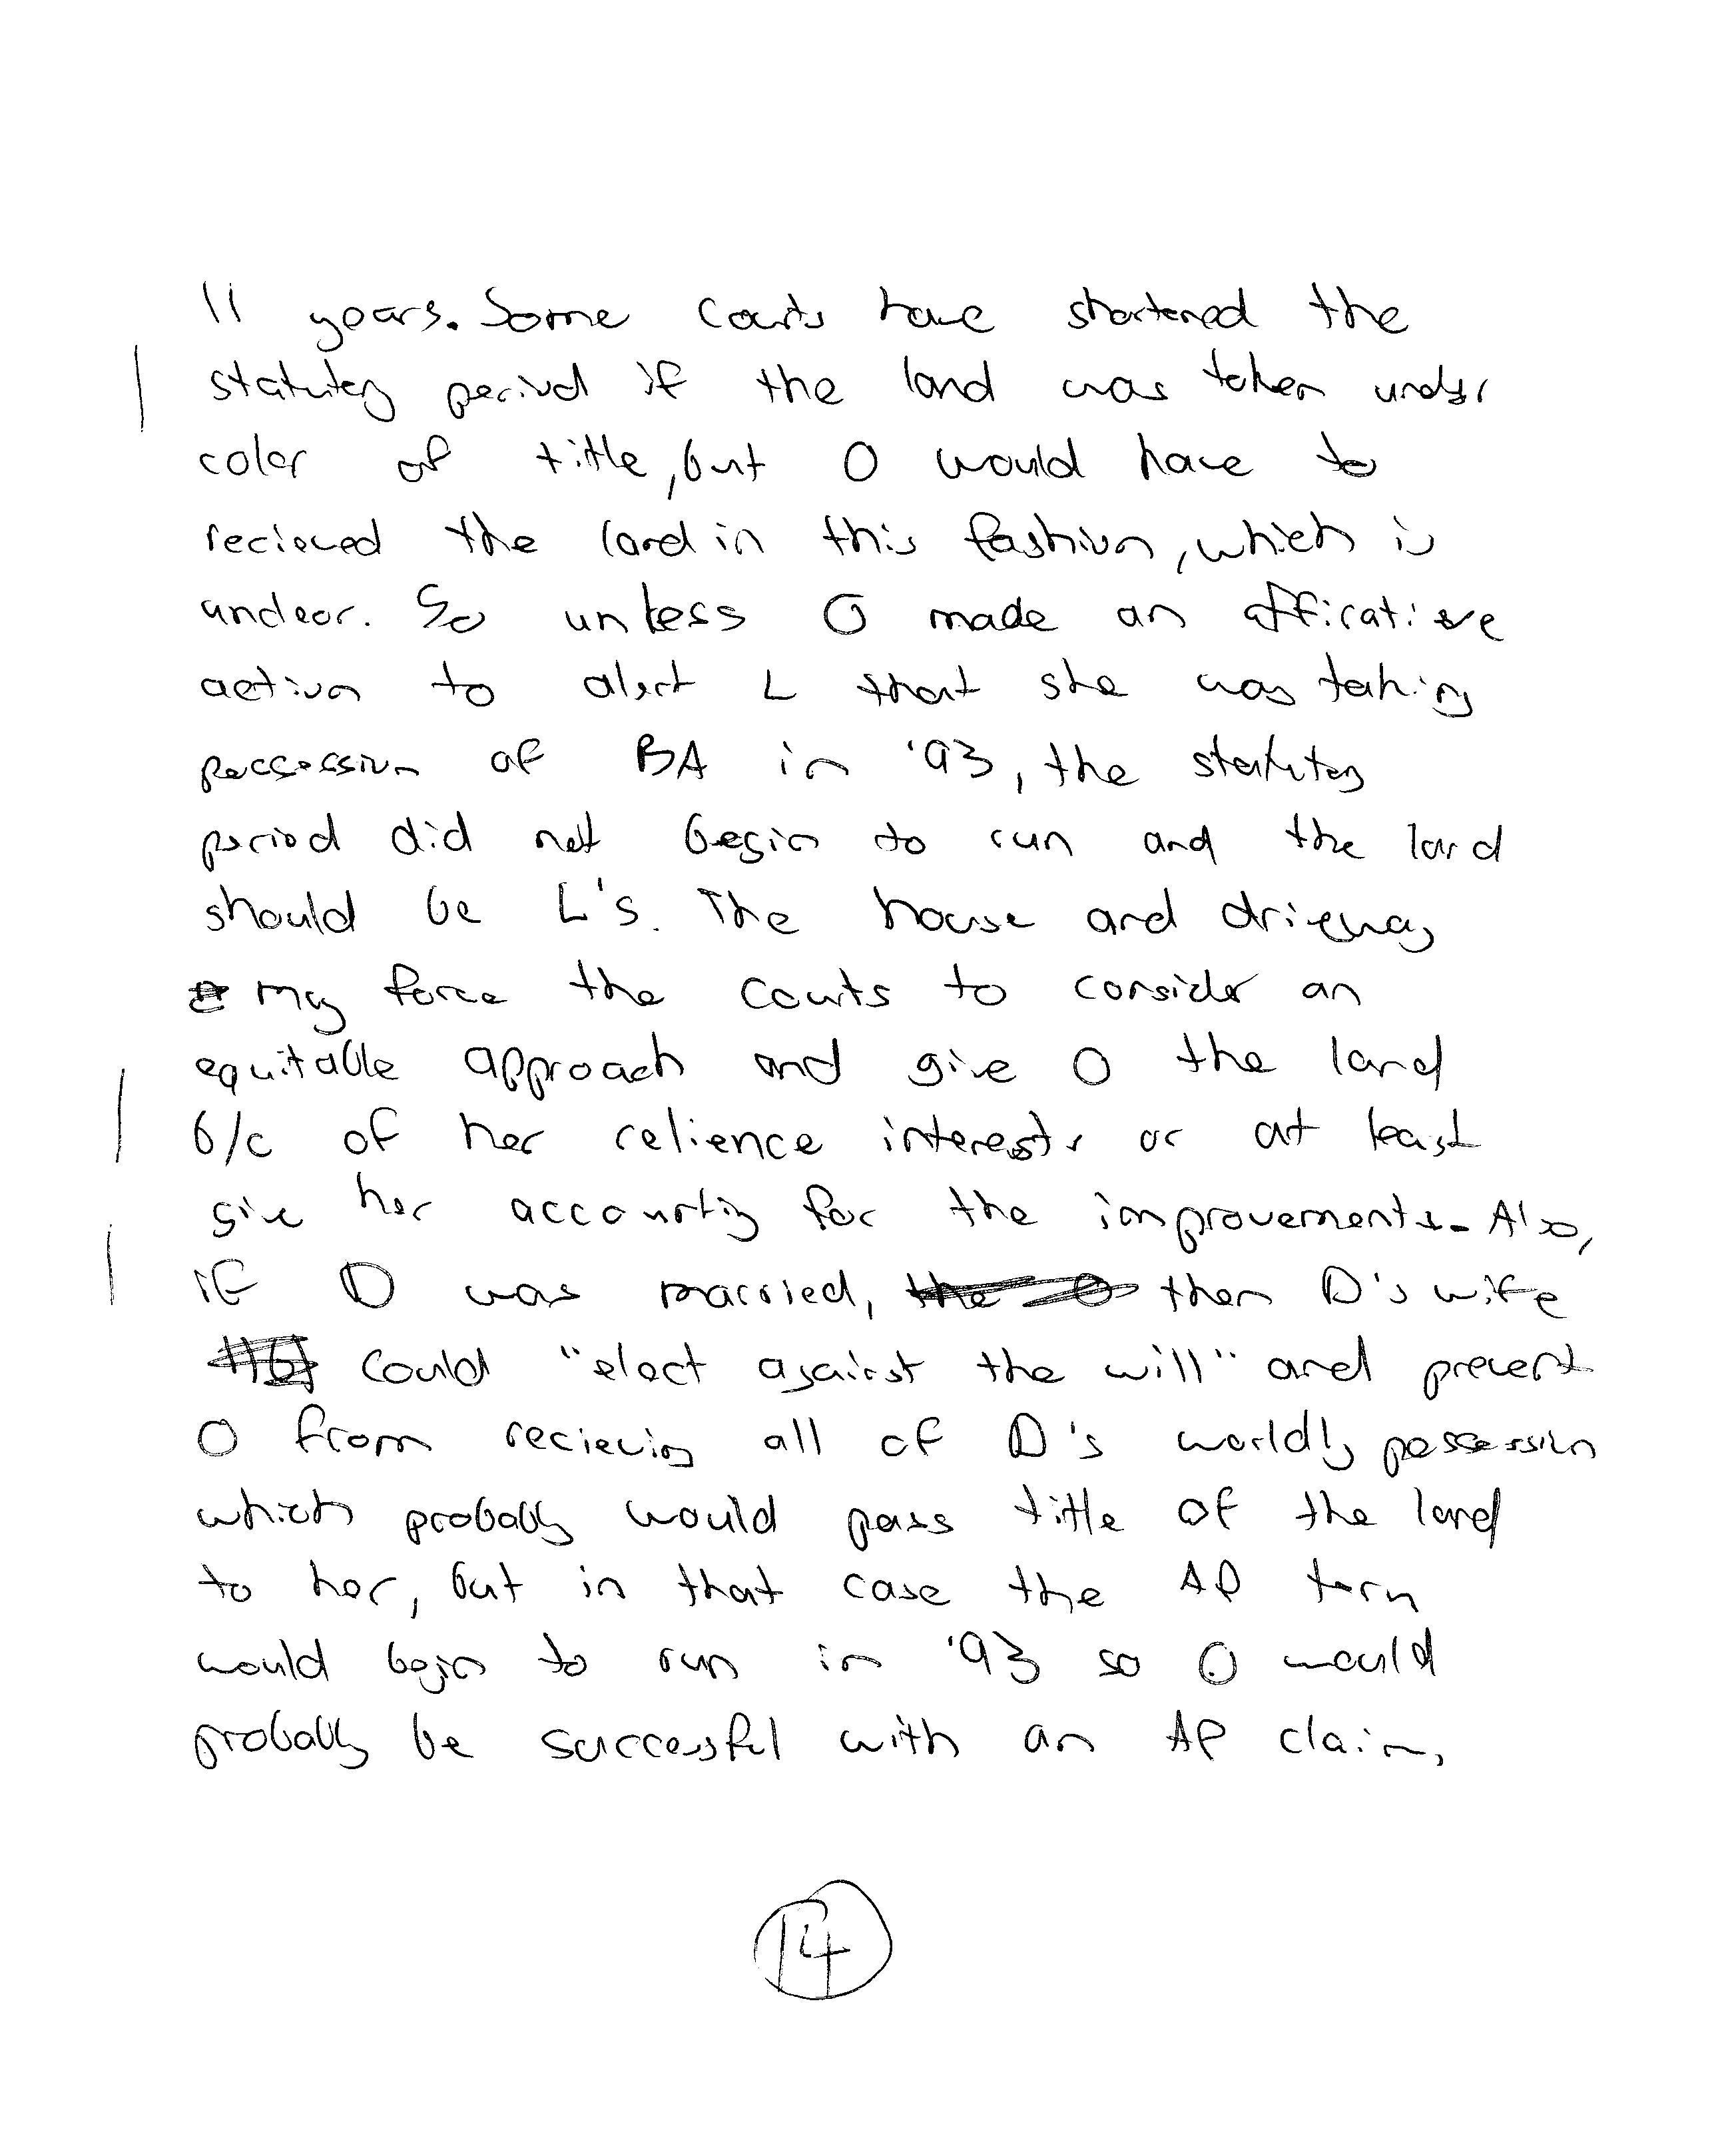 11 years. Some courts have shortened the
statutory period if the land was taken under
color of title, but O would have to
recieved the land in this fashion, which is
unclear. So unless O made an afficative
action to alert L that she was taking
possession of BA in '93, the statutory
period did not begin to run and the land
should be L's. The house and driveway
may force the courts to consider an
equitable approach and give O the land
b/c of her relience interests or at least
give her accounting for the improvements. Also,
if D was married, then D's wife
could "elect against the will" and prevent
O from recieving all of D's worldly possession
which probably would pass title of the land
to her, but in that case the AP term
would begin to run in '93 so O would
probably be successful with an AP claim.
14